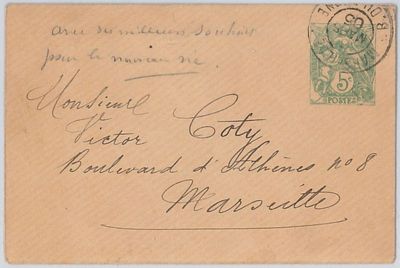 avec ses meilleurs souhaits
pour le nouveau né.
MARS
05
5c
POSTES
Monsieur
Victor Coty
Boulevard d'Athènes no 8
Marseille